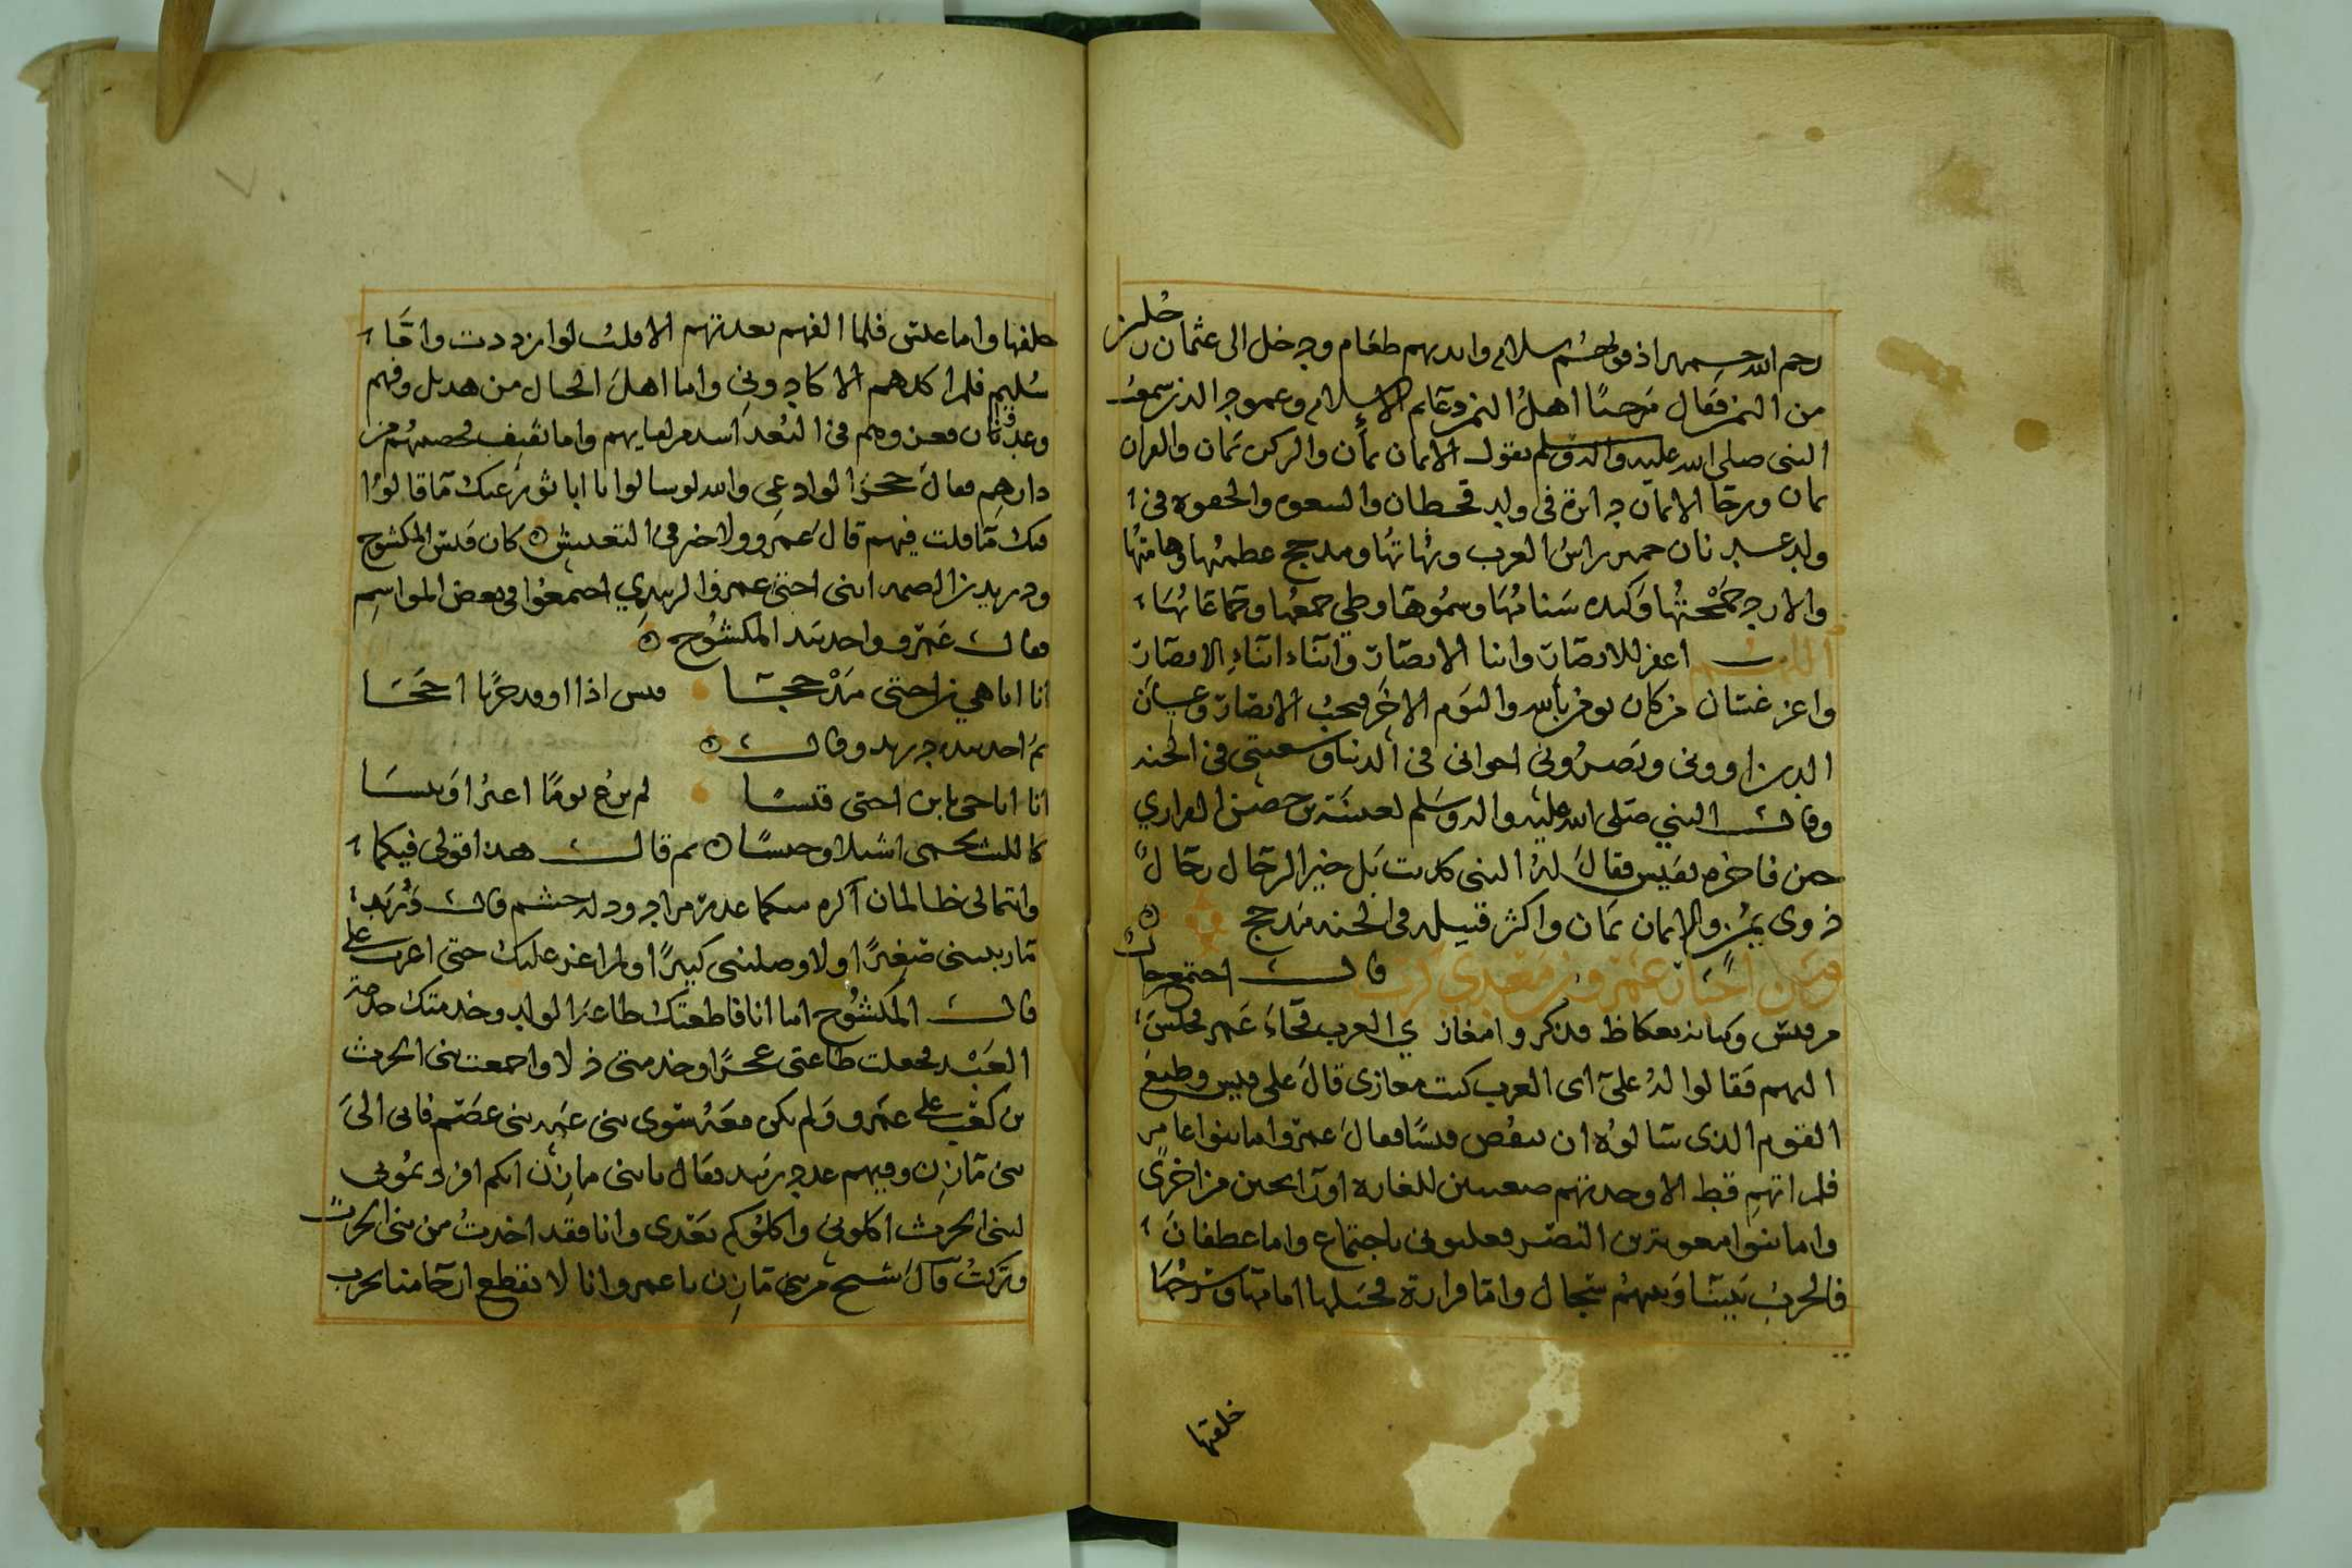 رحم الله حميرا اذ فواههم سلام وايديهم طعام ودخل الى عثمان رجلين
من اليمن فقال مرحبا اهل اليمن دعايم الاسلام وعمود الدين سمعت
النبي صلى الله عليه واله وسلم يقول الايمان يمان والركن يمان والقران
يمان ورحا الايمان دايرة في ولد قحطان والقسوة والجفوة في
ولد عدنان حمير راس العرب ونابها ومذحج عظمتها وهامتها
والازد جمجمتها وكنده سنانها وسموها وطي جمعها وجماعاتها
اللهم اعفر للانصار وابنا الانصار وابناء ابناء الانصار
واعز غسان من كان يومن بالله واليوم الاخر فيحب الانصار وغسان
الذين اووني ونصروني اخواني في الدنيا وشيعتي في الجنه
وقال النبي صلى الله عليه واله وسلم لعيينة بن حصن الفزاري
حين فاخره بقيس فقال له النبي كذبت بل خير الرجال رجال
ذوي يمن والايمان يمان واكثر قبيله في الجنه مذحج
ومن اخبار عمرو بن معدي كرب قال اجتمع رجال
من قيس وكنانه بعكاظ فذكروا مغازي العرب فجاء عمر فجلس
اليهم فقالوا له على اي العرب كنت مغازي قال على قيس وطبع
القوم الذي سالوه ان ينقص قيسا فقال عمرو اما بنوا عامر
فلم اتهم قط الا وجدتهم مغيرين للغارة او رابحين من اخرى
واما بنوا معوية بن النضر فغلبوني باجتماع واما غطفان
فالحرب بيننا وبينهم سجال واما فزارة فحسبها امامها وشرها
خلفها
خلفها واما عبس فلما القهم بعدتهم الا قلت لو ازددت واما
سليم فلم اكدهم الا كادوني واما اهل الجبال من هذيل وفهم
وعدوان فعن وهم في البعد اسد من لقايهم واما ثقيف فحصنهم من
دارهم فقال حجر الوادعي والله لو سالوانا ابا ثور عنك ما قالوا
فيك ما قلت فيهم قال عمرو ولا خير في التعبيش كان قيس المكشوح
ودريد بن الصمه ابني اختي عمرو الزبيدي اجتمعوا في بعض المواسم
فقال عمرو واخذ بيد المكشوح
انا اباهي بن اختي مذحجا قيس اذا اوقد حربا اججا
ثم اخذ بيد دريد وقال
انا اباحي بابن اختي قيسا لم يرع يوما اعنزا وتيسا
كالليث يحمي اشبلا وخيسا ثم قال هذا قولي فيكما
وانتما لي ظالمان اكره بينكما عديرا من ادود له جشم قال دريد
ما ربيتني صغيرا ولا وصلتني كبيرا ولم اعز عليك حتى اعرب علي
قال المكشوح اما انا فاطعتك طاعة الولد وخدمتك خدمة
العبد فجعلت طاعتي عجزا وخدمتي ذلا واجمعت بني الحرث
بن كعب على عمرو ولم يكن معه سوى بني عمه بني عصم فاتى الى
بني مازن وفيهم عدد يريد فقال يا بني مازن انكم افردتموني
لبني الحرث اكلوني واكلوكم بعدي وانا فقد اخذت من بني الحرث
وتركت قال شيخ من بني مازن يا عمرو انا لا نقطع ارحامنا بحرب